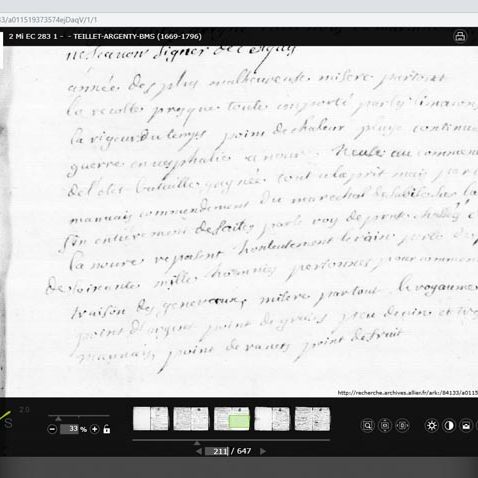 3/a011519373574ejDaqV/1/1
2 Mi EC 283 1 - - TEILLET-ARGENTY-BMS (1669-1796)
ne scavoir signer de ce enquis
année des plus malheureuse misere partout
la recolte presque toute emporté par les limacons
la rigeur du temps point de chaleur pluye continue
guerre en vesphalie
de l'été bataille gagnée tout alaprit mais par
mauvais commandement du marechal de
fin entierement defaites par le roy de prusse
la noure repasent honteusement le rhin perte de
de soixante mille hommes personnes pour commen
traison des genereaux misere partout le royaume
point d'argent point de grains peu de vin et tres
mauvais, point de raves point de fruit
http://recherche.archives.allier.fr/ark:/84133/a0115
2.0
33 %
211 / 647